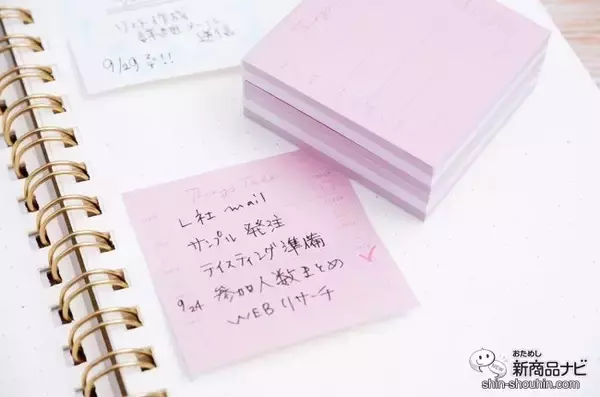 9/29 マデ!!
Things To Do
L社 mail
サンプル発注
テイスティング準備
9/24 参加人数まとめ
WEBリサーチ
おためし
新商品ナビ
shin-shouhin.com